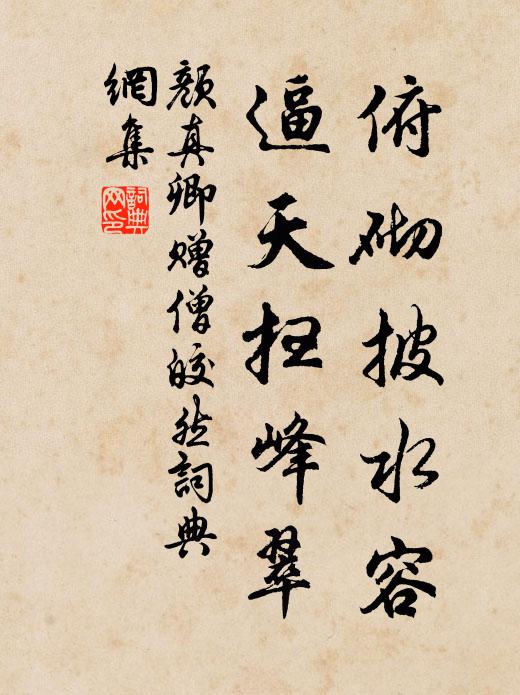 俯砌披水容
逼天扫峰翠
颜真卿赠僧皎然詞典
網集
詞典網印